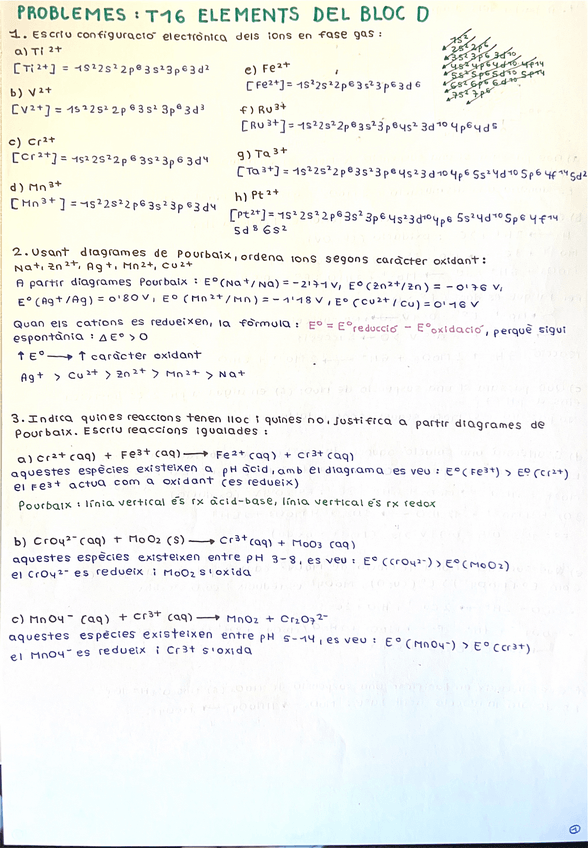 PROBLEMES: T16 ELEMENTS DEL BLOC D
1. Escriu configuració electrònica dels ions en fase gas:
1s2
2s2 2p6
3s2 3p6 3d10
4s2 4p6 4d10 4f14
5s2 5p6 5d10 5f14
6s2 6p6 6d10
7s2 7p6
a) Ti 2+
[Ti2+] = 1s2 2s2 2p6 3s2 3p6 3d2
b) V2+
[V2+] = 1s2 2s2 2p6 3s2 3p6 3d3
c) Cr2+
[Cr2+] = 1s2 2s2 2p6 3s2 3p6 3d4
d) Mn3+
[Mn3+] = 1s2 2s2 2p6 3s2 3p6 3d4
e) Fe2+
[Fe2+] = 1s2 2s2 2p6 3s2 3p6 3d6
f) Ru3+
[Ru3+] = 1s2 2s2 2p6 3s2 3p6 4s2 3d10 4p6 4d5
g) Ta3+
[Ta3+] = 1s2 2s2 2p6 3s2 3p6 4s2 3d10 4p6 5s2 4d10 5p6 4f14 5d2
h) Pt2+
[Pt2+] = 1s2 2s2 2p6 3s2 3p6 4s2 3d10 4p6 5s2 4d10 5p6 4f14
5d8 6s2
2. Usant diagrames de Pourbaix, ordena ions segons caràcter oxidant:
Na+, Zn2+, Ag+, Mn2+, Cu2+
A partir diagrames Pourbaix: E°(Na+/Na) = -2'71 V, E°(Zn2+/Zn) = -0'76 V,
E°(Ag+/Ag) = 0'80 V, E°(Mn2+/Mn) = -1'18 V, E°(Cu2+/Cu) = 0'16 V
Quan els cations es redueixen, la fórmula: E° = E°reducció - E°oxidació, perquè sigui
espontània: ΔE° > 0
↑ E° → ↑ caràcter oxidant
Ag+ > Cu2+ > Zn2+ > Mn2+ > Na+
3. Indica quines reaccions tenen lloc i quines no. Justifica a partir diagrames de
Pourbaix. Escriu reaccions igualades:
a) Cr2+ (aq) + Fe3+ (aq) → Fe2+ (aq) + Cr3+ (aq)
aquestes espècies existeixen a pH àcid, amb el diagrama es veu: E°(Fe3+) > E°(Cr2+)
el Fe3+ actua com a oxidant (es redueix)
Pourbaix: línia vertical és rx àcid-base, línia vertical és rx redox
b) CrO4 2- (aq) + MoO2 (s) → Cr3+ (aq) + MoO3 (aq)
aquestes espècies existeixen entre pH 3-8, es veu: E°(CrO4 2-) > E°(MoO2)
el CrO4 2- es redueix i MoO2 s'oxida
c) MnO4- (aq) + Cr3+ (aq) → MnO2 + Cr2O7 2-
aquestes espècies existeixen entre pH 5-14, es veu: E°(MnO4-) > E°(Cr3+)
el MnO4- es redueix i Cr3+ s'oxida
1